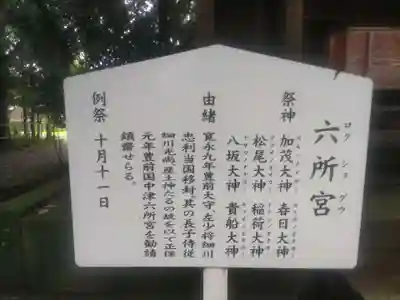 六所宮
ロクショグウ
祭神
加茂大神 春日大神
松尾大神 稲荷大神
八坂大神 貴船大神
由緒
寛永九年豊前太守、左少将細川
忠利当国移封、其の長子侍従
細川光尚産土神たるの故を以て正保
元年豊前国中津六所宮を勧請
鎮齋せらる。
例祭
十月十一日